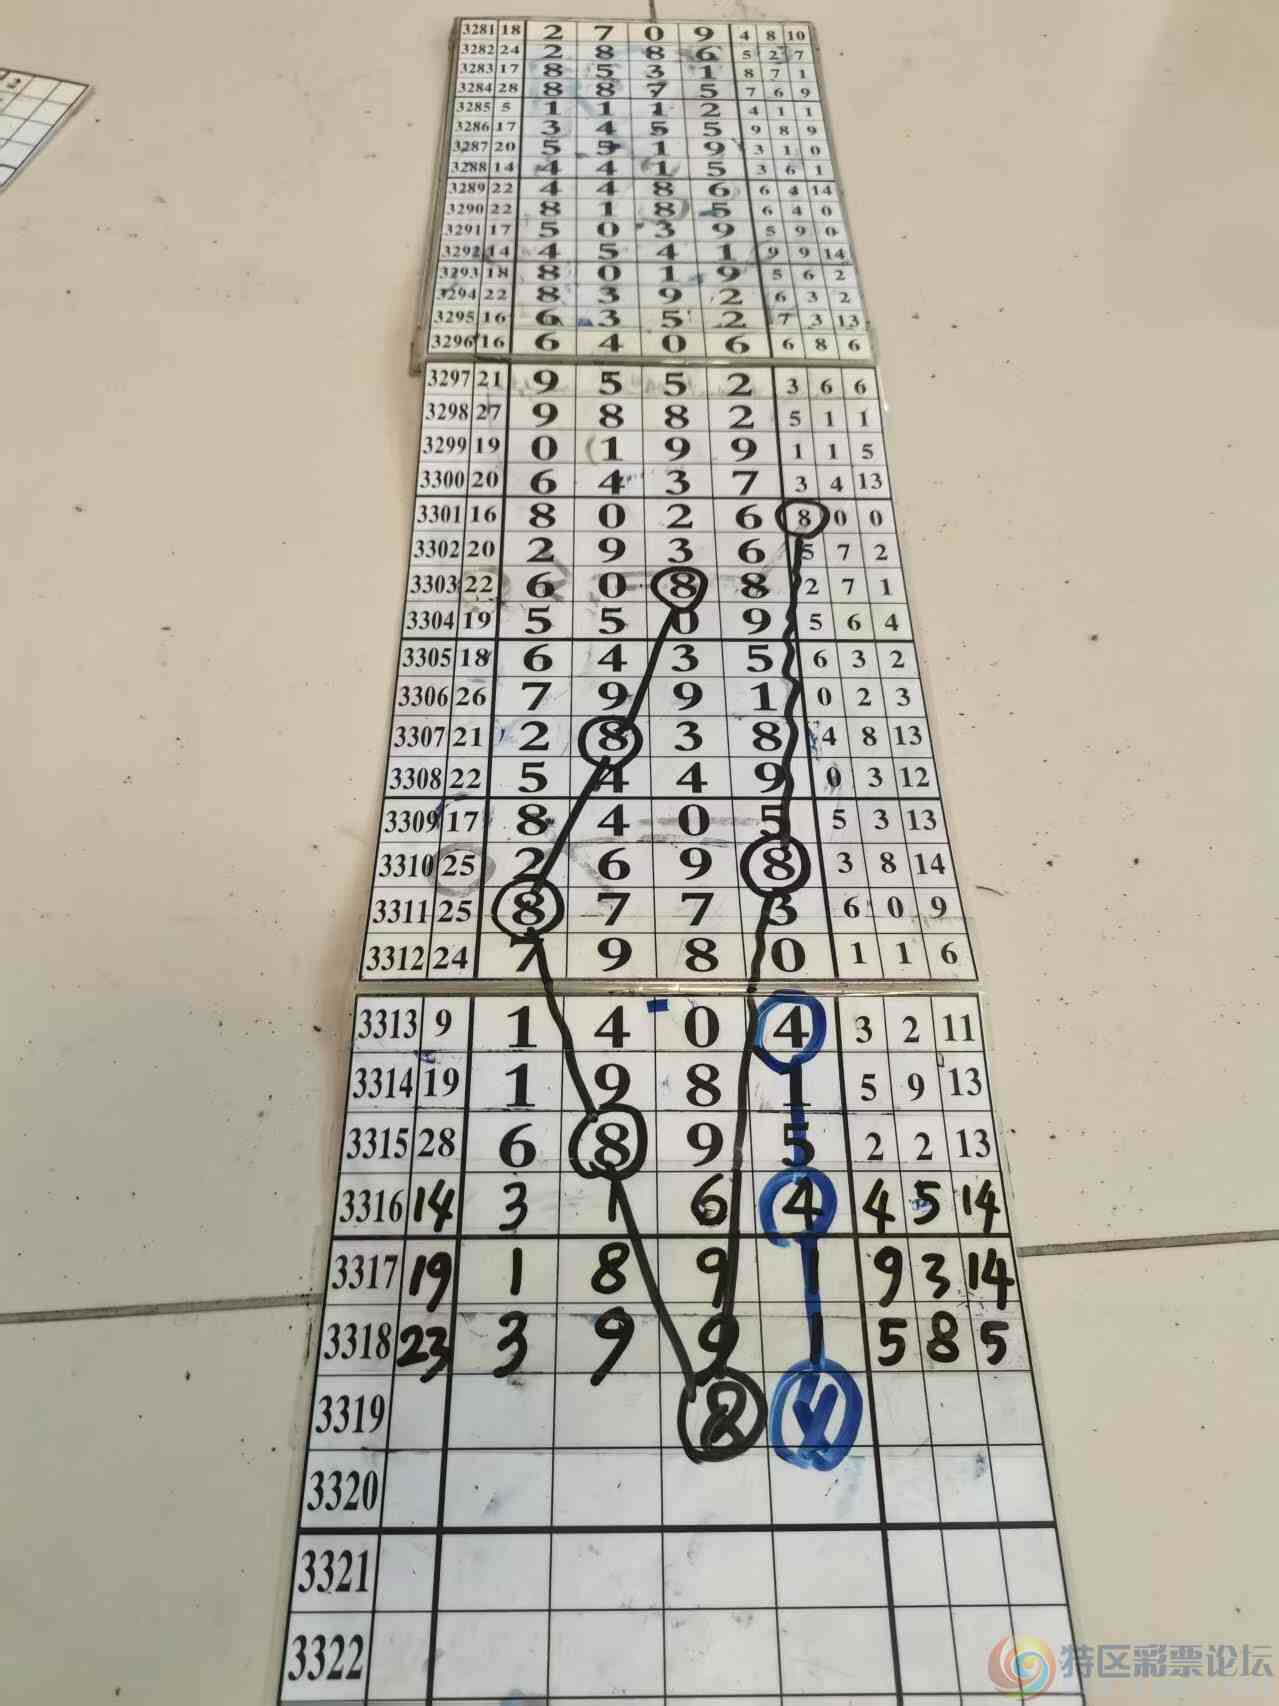 3281 18 2 7 0 9 4 8 10
3282 24 2 8 8 6 5 2 7
3283 17 8 5 3 1 8 7 1
3284 28 8 8 7 5 7 6 9
3285 5 1 1 1 2 4 1 1
3286 17 3 4 5 5 9 8 9
3287 20 5 5 1 9 3 1 0
3288 14 4 4 1 5 3 6 1
3289 22 4 4 8 6 6 4 14
3290 22 8 1 8 5 6 4 0
3291 17 5 0 3 9 5 9 0
3292 14 4 5 4 1 9 9 14
3293 18 8 0 1 9 5 6 2
3294 22 8 3 9 2 6 3 2
3295 16 6 3 5 2 7 3 13
3296 16 6 4 0 6 6 8 6
3297 21 9 5 5 2 3 6 6
3298 27 9 8 8 2 5 1 1
3299 19 0 1 9 9 1 1 5
3300 20 6 4 3 7 3 4 13
3301 16 8 0 2 6 8 0 0
3302 20 2 9 3 6 5 7 2
3303 22 6 0 8 8 2 7 1
3304 19 5 5 0 9 5 6 4
3305 18 6 4 3 5 6 3 2
3306 26 7 9 9 1 0 2 3
3307 21 2 8 3 8 4 8 13
3308 22 5 4 4 9 0 3 12
3309 17 8 4 0 5 5 3 13
3310 25 2 6 9 8 3 8 14
3311 25 8 7 7 3 6 0 9
3312 24 7 9 8 0 1 1 6
3313 9 1 4 0 4 3 2 11
3314 19 1 9 8 1 5 9 13
3315 28 6 8 9 5 2 2 13
3316 14 3 1 6 4 4 5 14
3317 19 1 8 9 1 9 3 14
3318 23 3 9 9 1 5 8 5
3319 8 4
3320
3321
3322
特区彩票论坛